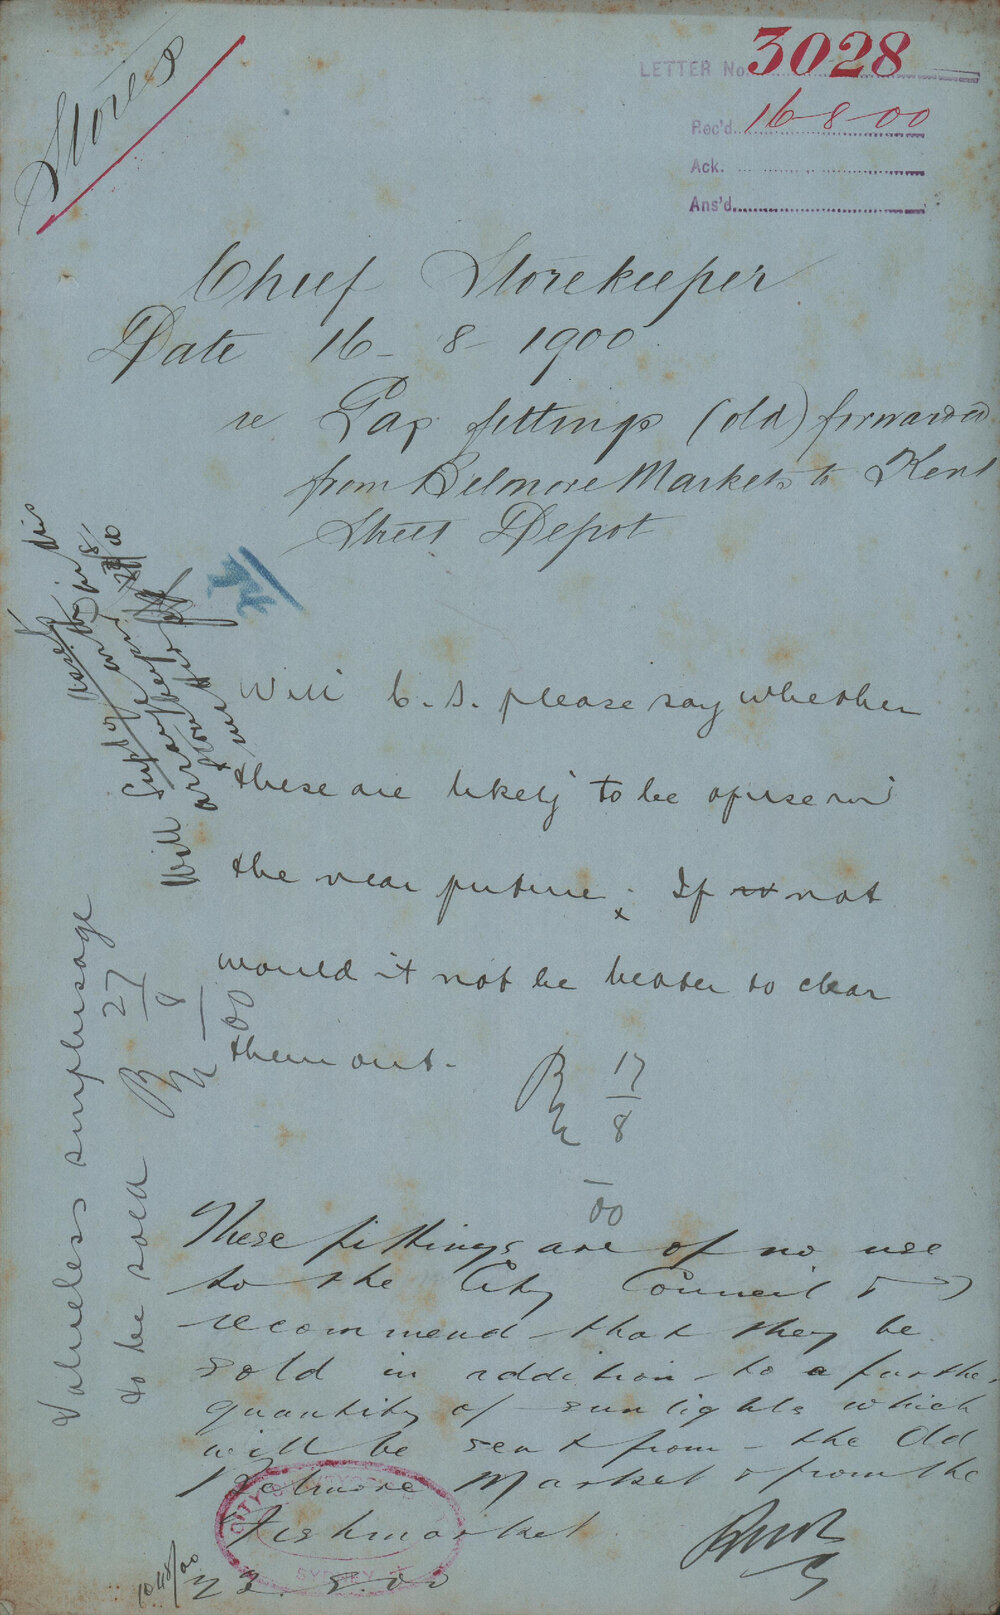 Stores
LETTER No. 3028
Rec'd. 16-8-00
Ack.
Ans'd.
Chief Storekeeper
Date 16-8-1900
re Gas fittings (old) forwarded
from Belmore Markets to Kent
Street Depot
Will C. S. please say whether
these are likely to be of use in
the near future; If not
x
would it not be better to clear
them out.
17
8
00
These fittings are of no use
to the City Council & I
recommend that they be
sold in addition to a further
quantity of sunlights which
will be sent from the Old
Belmore Market & from the
Fishmarket
23.8.00
CITY
SYDNEY
Valueless surplusage
to be sold
27
8
00
Will
arrange